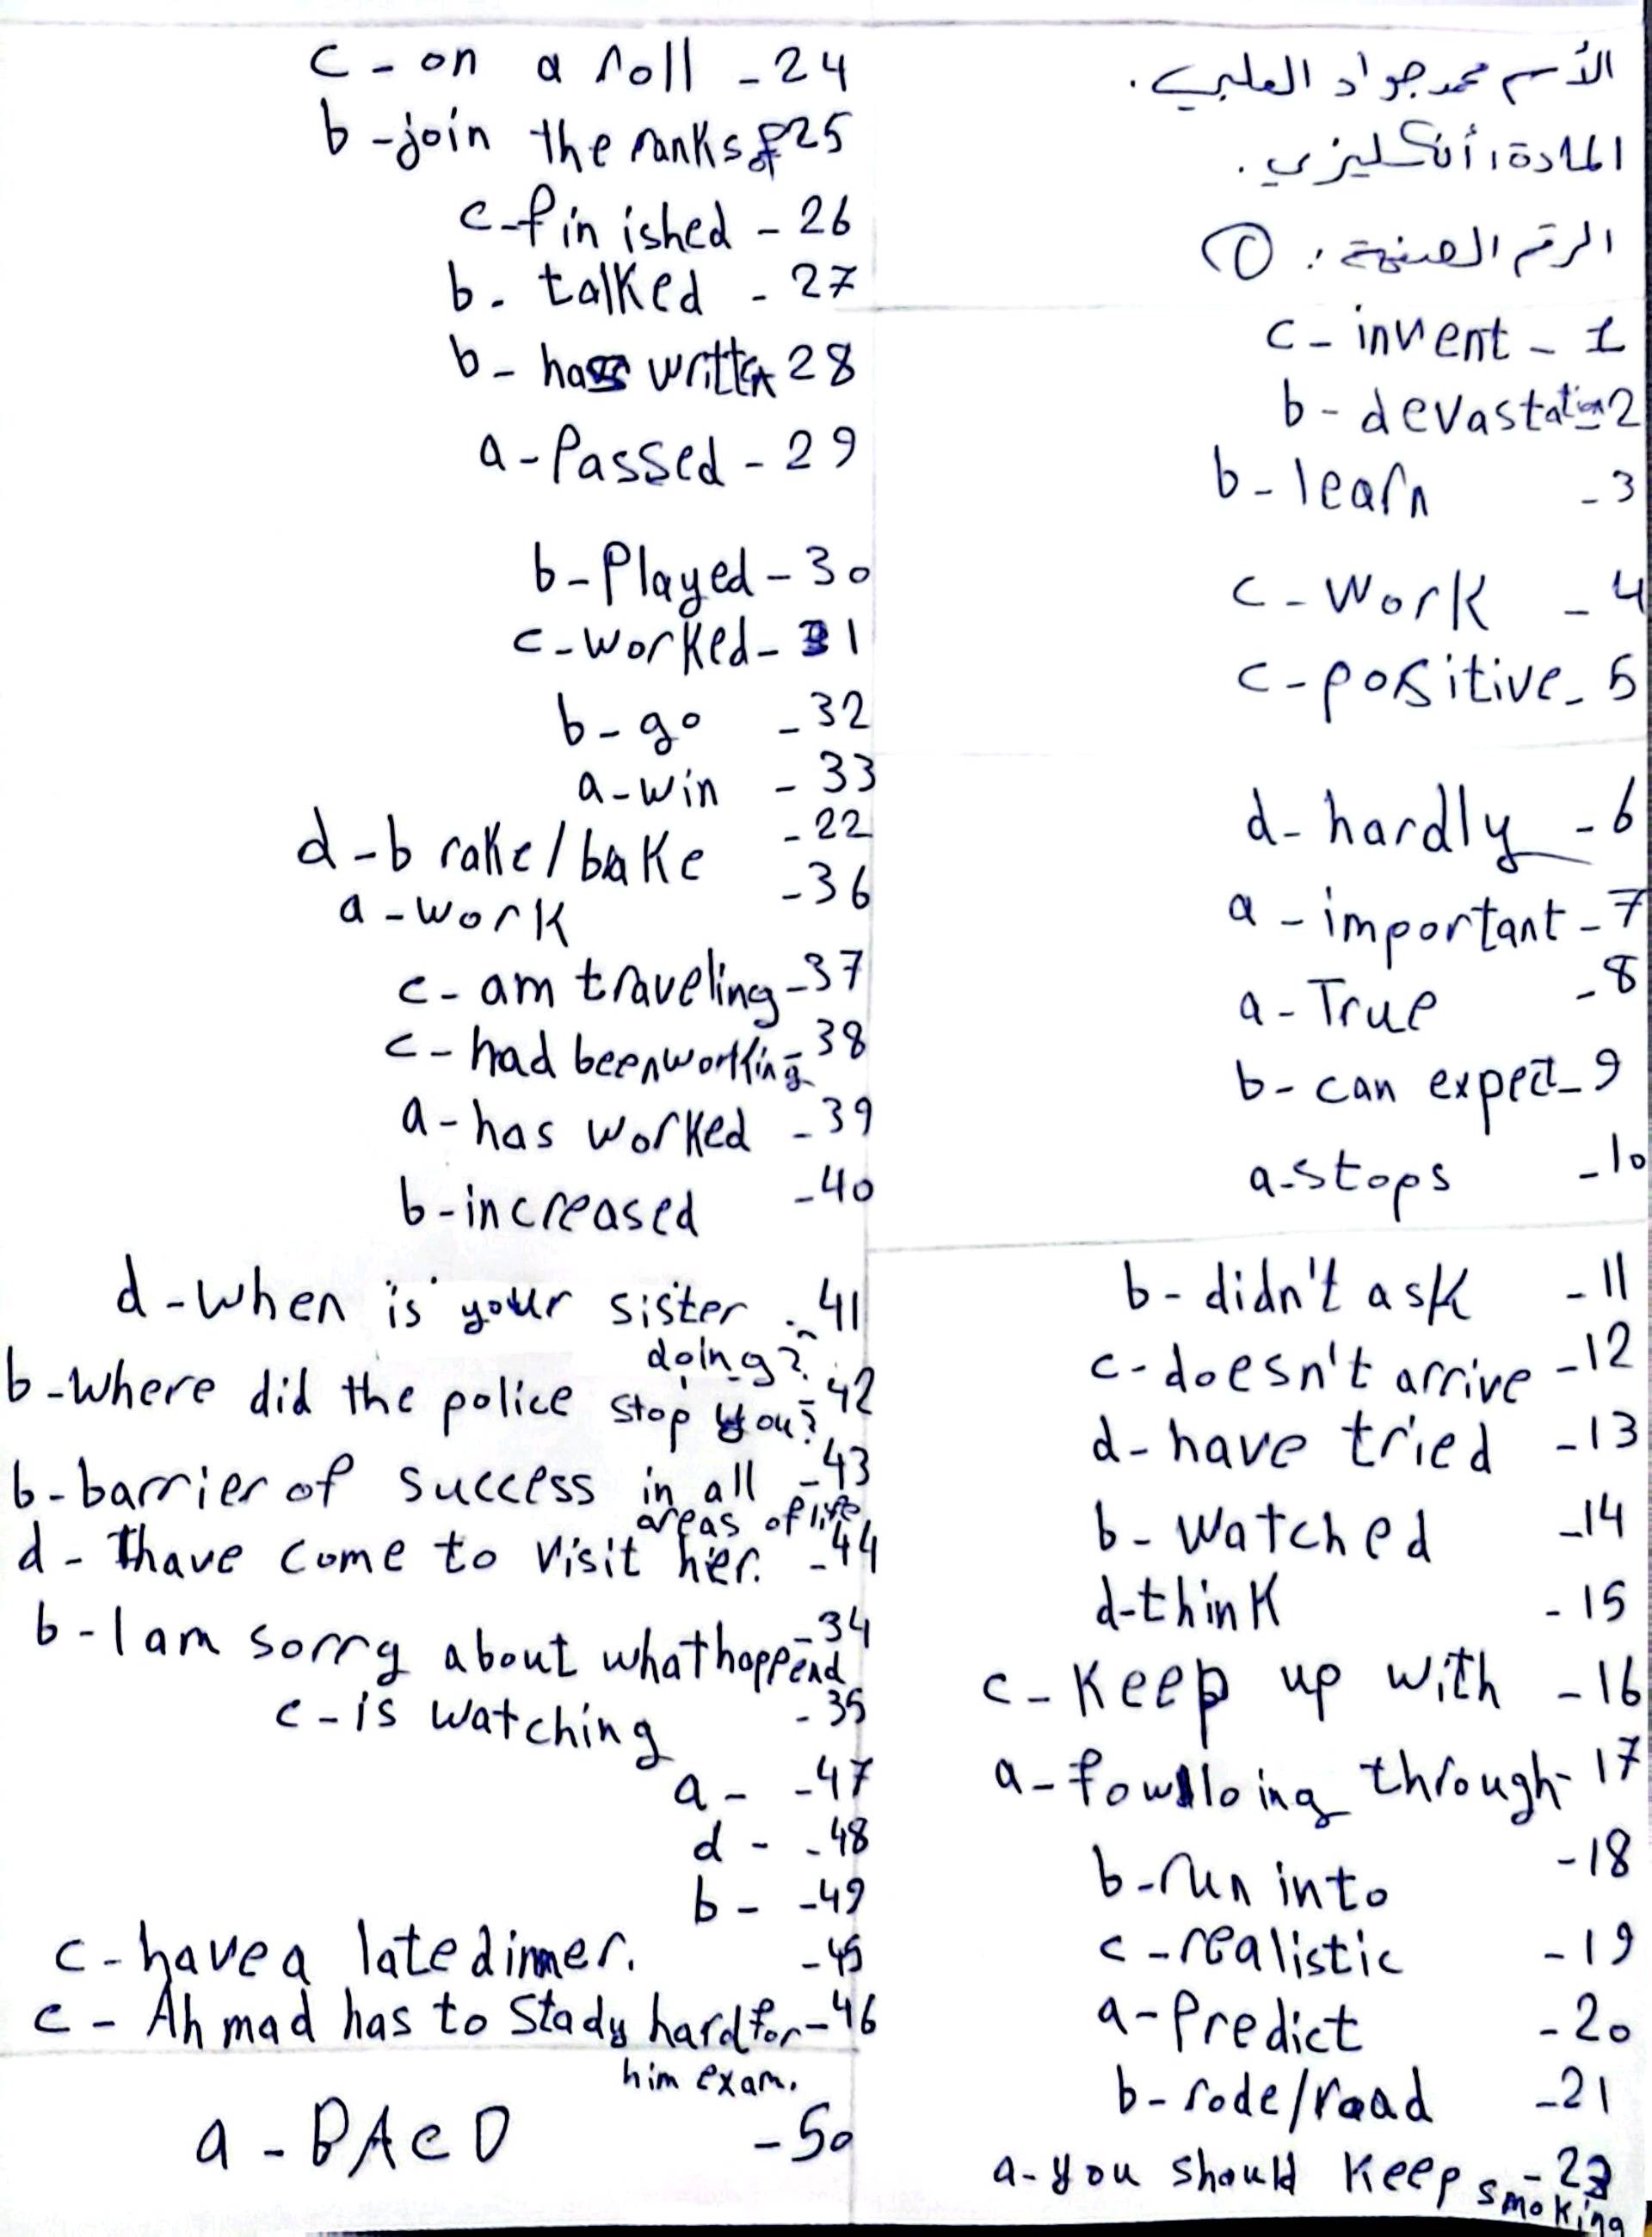 الأسم محمد جواد العلبي.
المادة، أنكليزي.
الرقم الصفحة: ①
c - invent - 1
b - devastation - 2
b - learn - 3
c - work - 4
c - positive - 5
d - hardly - 6
a - important - 7
a - True - 8
b - can expect - 9
a - stops - 10
b - didn't ask - 11
c - doesn't arrive - 12
d - have tried - 13
b - watched - 14
d - think - 15
c - Keep up with - 16
a - fowlloing through - 17
b - run into - 18
c - realistic - 19
a - Predict - 20
b - rode/road - 21
a - you should Keep smoking - 23
c - on a roll - 24
b - join the ranks of 25
c - finished - 26
b - talked - 27
b - has written 28
a - Passed - 29
b - Played - 30
c - worked - 31
b - go - 32
a - win - 33
d - brake/bake - 22
a - work - 36
c - am traveling - 37
c - had been working - 38
a - has worked - 39
b - increased - 40
d - when is your sister - 41
doing?
b - where did the police stop you? - 42
b - barrier of success in all - 43
areas of life
d - Ihave come to visit her. - 44
b - I am sorry about what happend - 34
c - is watching - 35
a - - 47
d - - 48
b - - 49
c - have a late dinner. - 45
c - Ahmad has to Stady hard for - 46
him exam.
a - BACD - 50